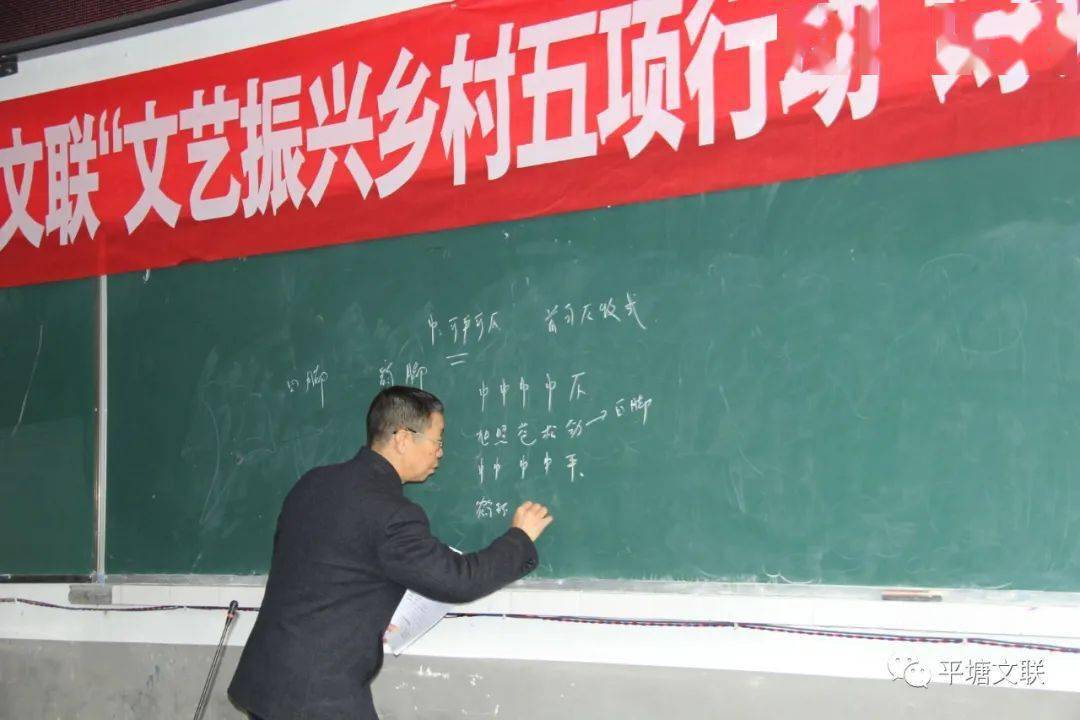 文联“文艺振兴乡村五项行动”
中:可平可仄 首句仄收式
白脚 韵脚
中中中中仄
→白脚
中中中中平、
平塘文联